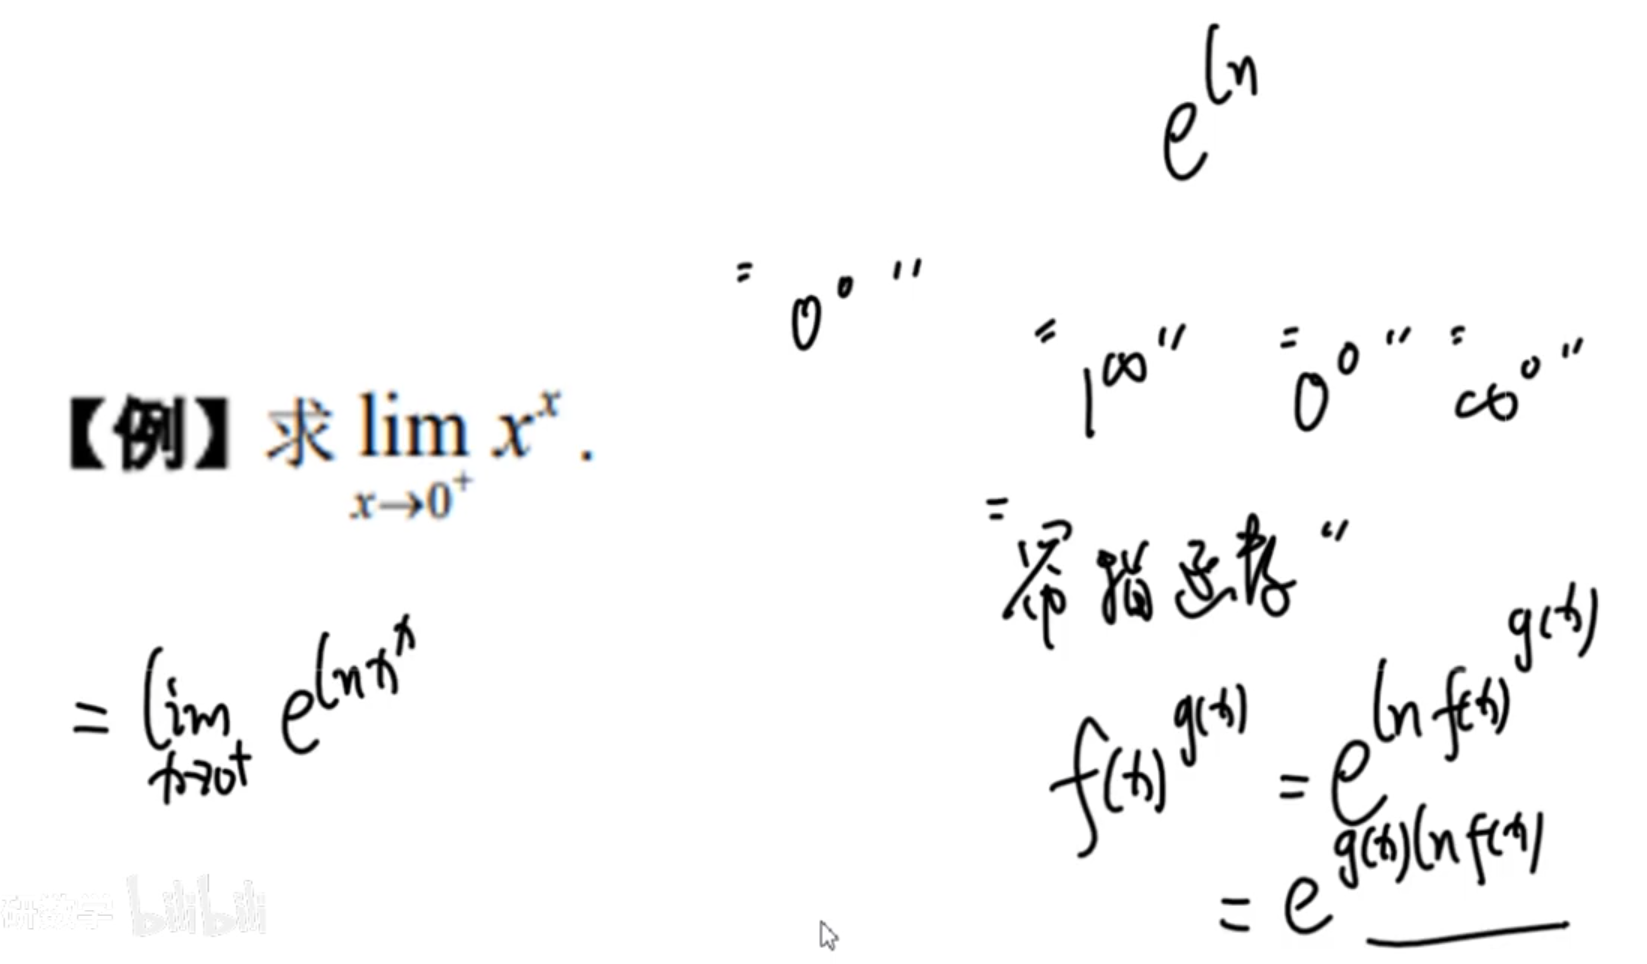 e^{ln}
"0^0"
"1^∞" "0^0" "∞^0"
【例】求 lim_{x→0^+} x^x .
"幂指函数"
= lim_{x→0^+} e^{ln x^x}
f(x)^{g(x)} = e^{ln f(x)^{g(x)}}
= e^{g(x) ln f(x)}
研数学 bilibili